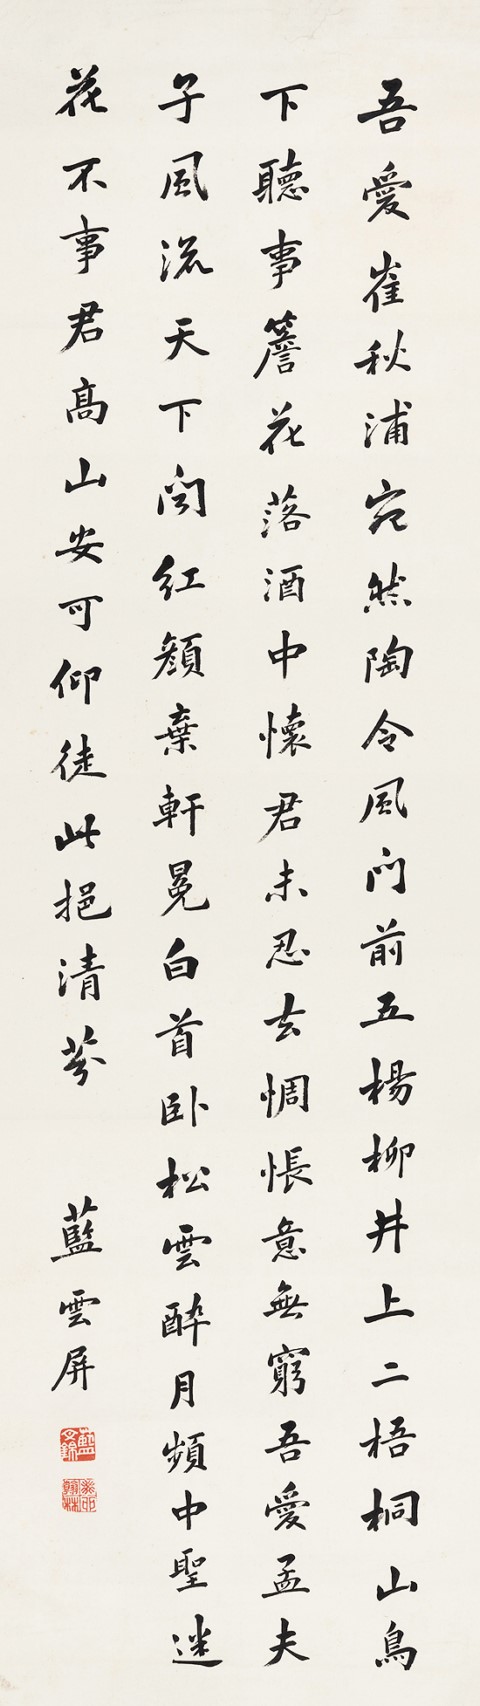 吾愛崔秋浦宛然陶令風門前五楊柳井上二梧桐山鳥
下聽事簷花落酒中懷君未忍去惆悵意無窮吾愛孟夫
子風流天下聞紅顏棄軒冕白首卧松雲醉月頻中聖迷
花不事君高山安可仰徒此挹清芬
藍雲屏
藍文錦
癸卯翰林